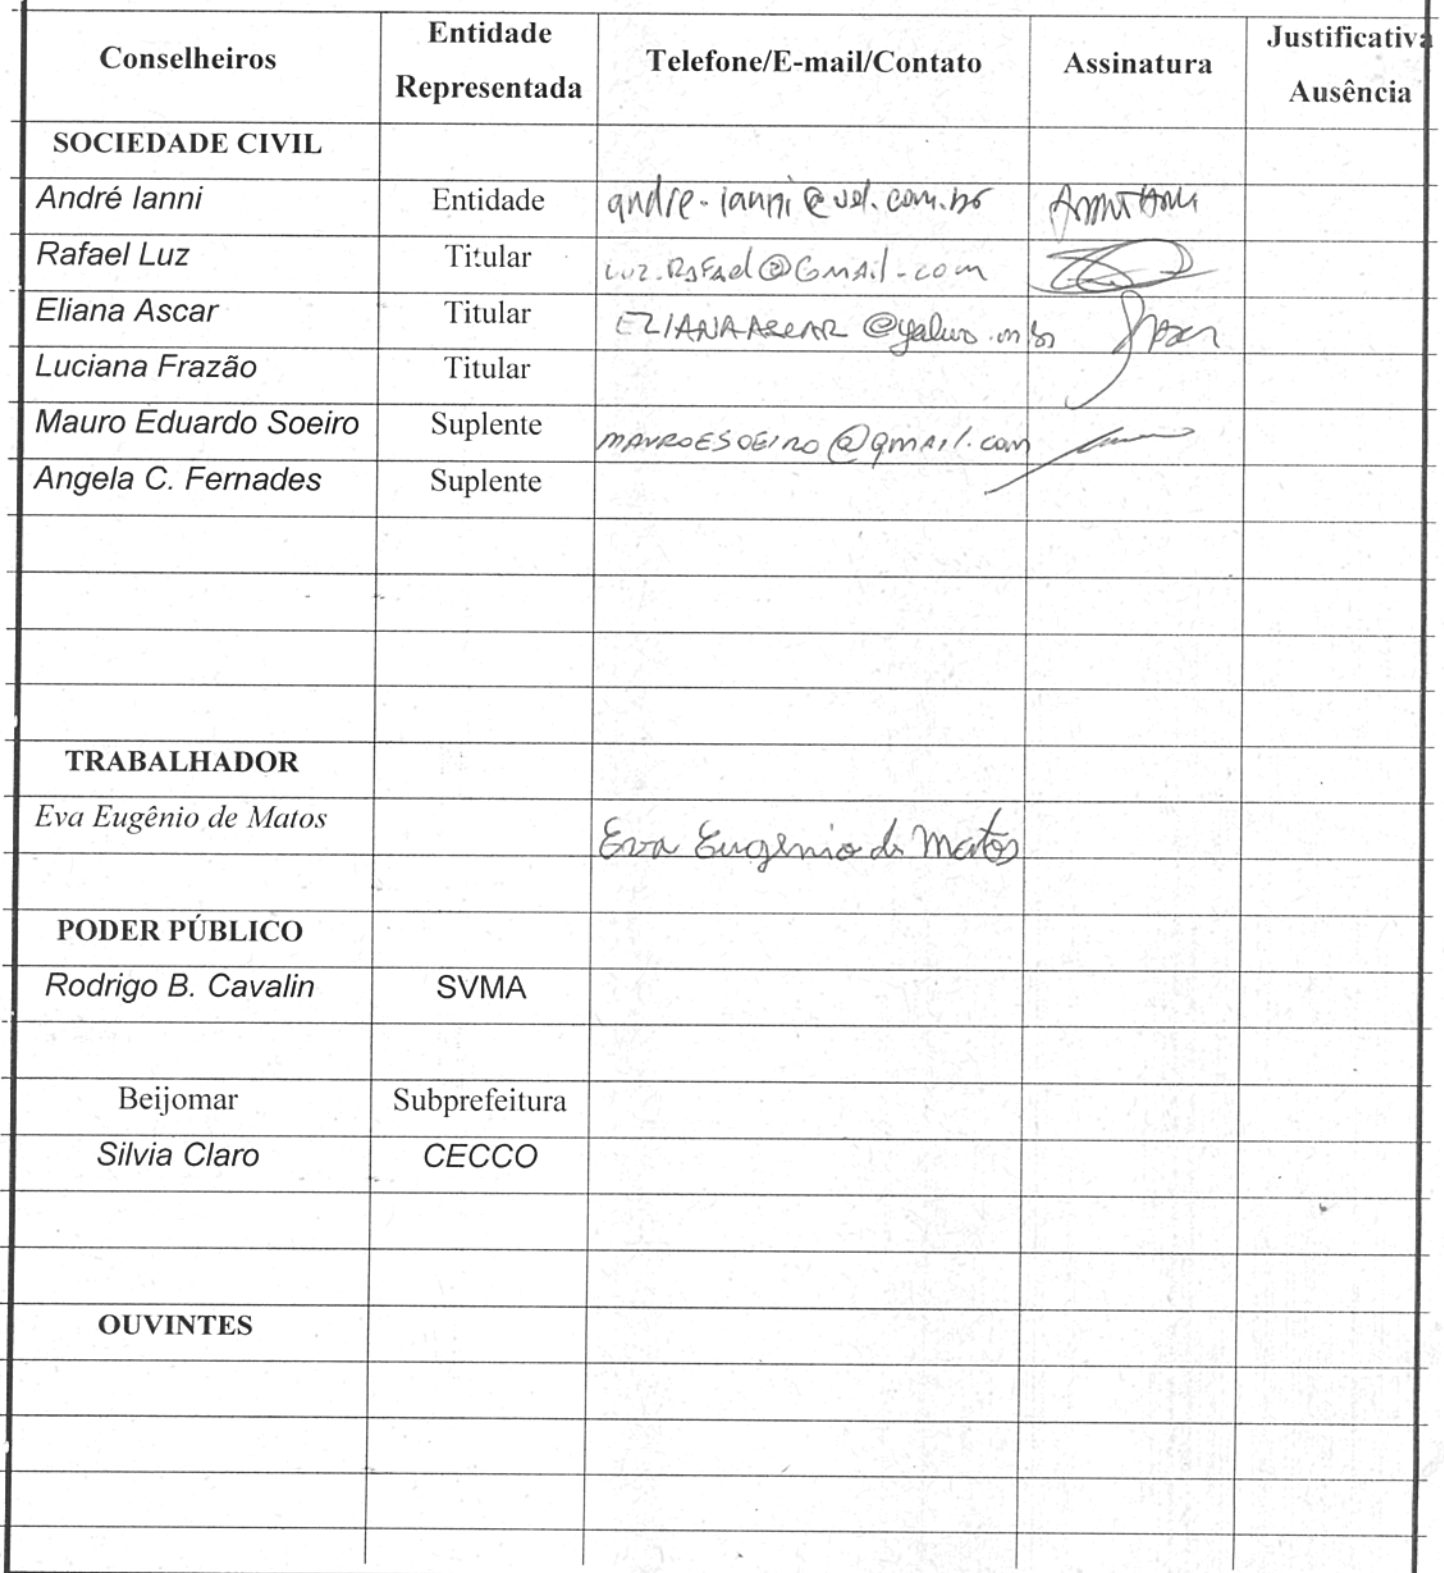 Conselheiros Entidade Representada Telefone/E-mail/Contato Assinatura Justificativa Ausência
SOCIEDADE CIVIL
André Ianni Entidade andre-ianni@uol.com.br
Rafael Luz Titular luz.Rafael@Gmail.com
Eliana Ascar Titular ELIANAASCAR @yahoo.com.br
Luciana Frazão Titular
Mauro Eduardo Soeiro Suplente MAUROESOEIRO@gmail.com
Angela C. Fernades Suplente
TRABALHADOR
Eva Eugênio de Matos Eva Eugênio de Matos
PODER PÚBLICO
Rodrigo B. Cavalin SVMA
Beijomar Subprefeitura
Silvia Claro CECCO
OUVINTES